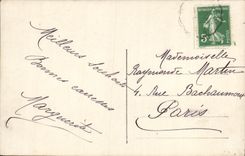 Meilleurs Souhaits
Bonnes caresses
Marguerite
5
Mademoiselle
Raymonde Martin
4, Rue Bachaumont
Paris